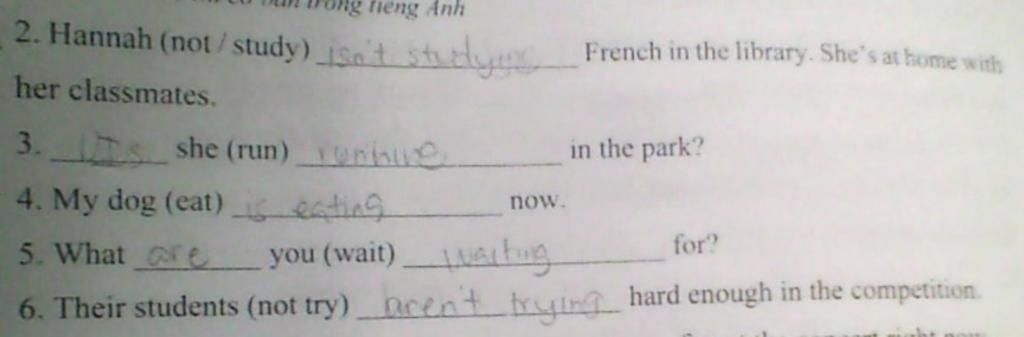 trong tiếng Anh
2. Hannah (not / study) isn't studying French in the library. She's at home with
her classmates.
3. Is she (run) in the park?
4. My dog (eat) is eating now.
5. What are you (wait) waiting for?
6. Their students (not try) aren't trying hard enough in the competition.
right now